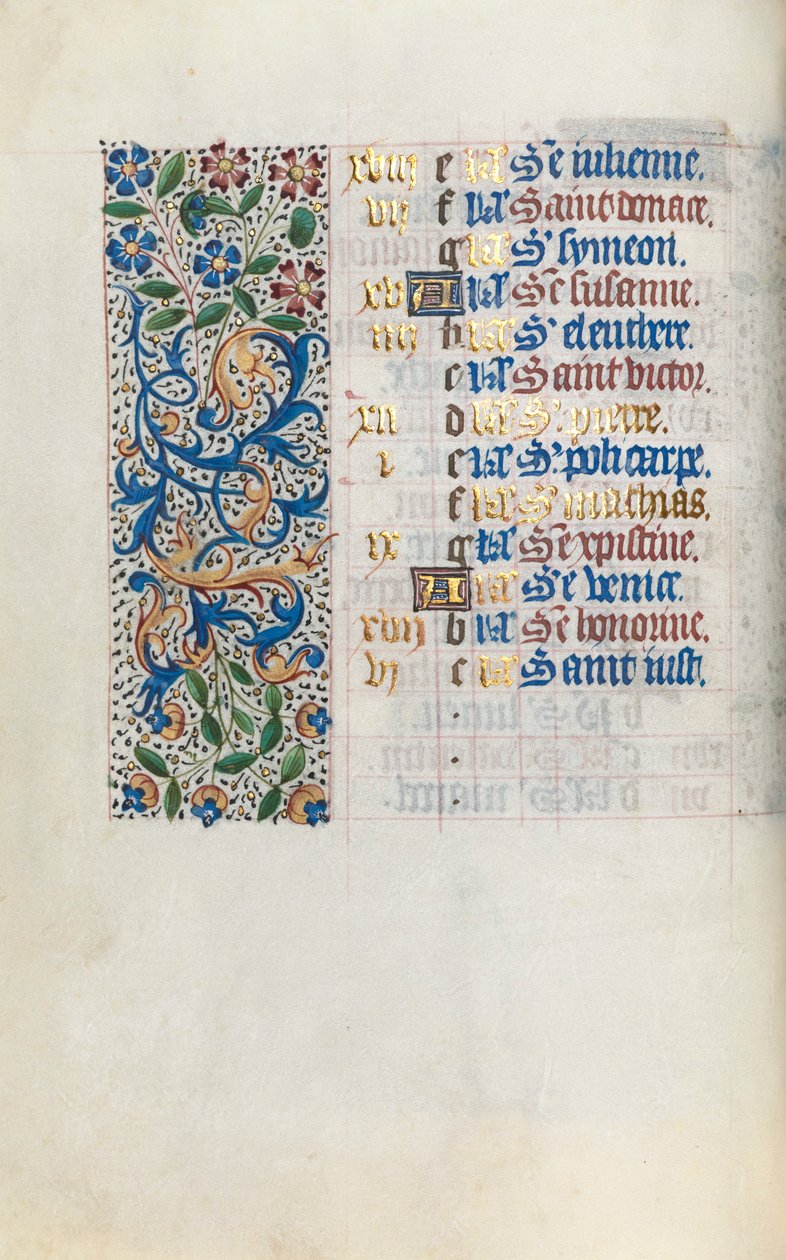 xviij e kl' Ste iulienne.
vij f kl' Saint donace.
g kl' S' symeon.
xv A kl' Ste susanne.
iiij b kl' S' eleuthere.
c kl' Saint victor.
xij d kl' S' pierre.
i e kl' S' policarpe.
f kl' S' mathias.
ix g kl' Ste xpistine.
A kl' Ste venice.
xvij b kl' Ste honorine.
vj c kl' Saint iust.